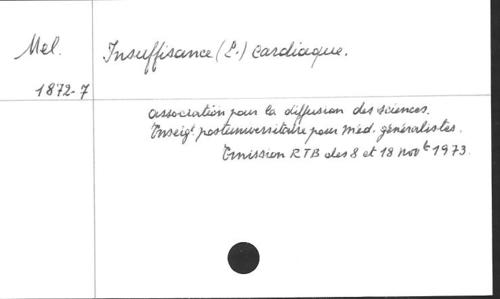 Mel. Insuffisance (L') cardiaque.
1872-7
Association pour la diffusion des sciences.
Enseigt. postuniversitaire pour méd. généralistes.
Emission RTB des 8 et 18 novb 1973.